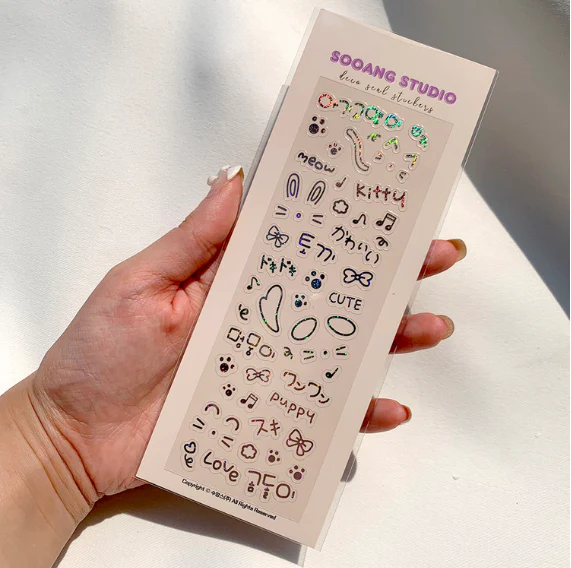 SOOANG STUDIO
deco seal stickers
meow
Kitty
かわいい
토끼
ドキドキ
CUTE
멍뭉이
ワンワン
puppy
スキ
Love
곰돌이
Copyright © 수앙스(주) All Rights Reserved